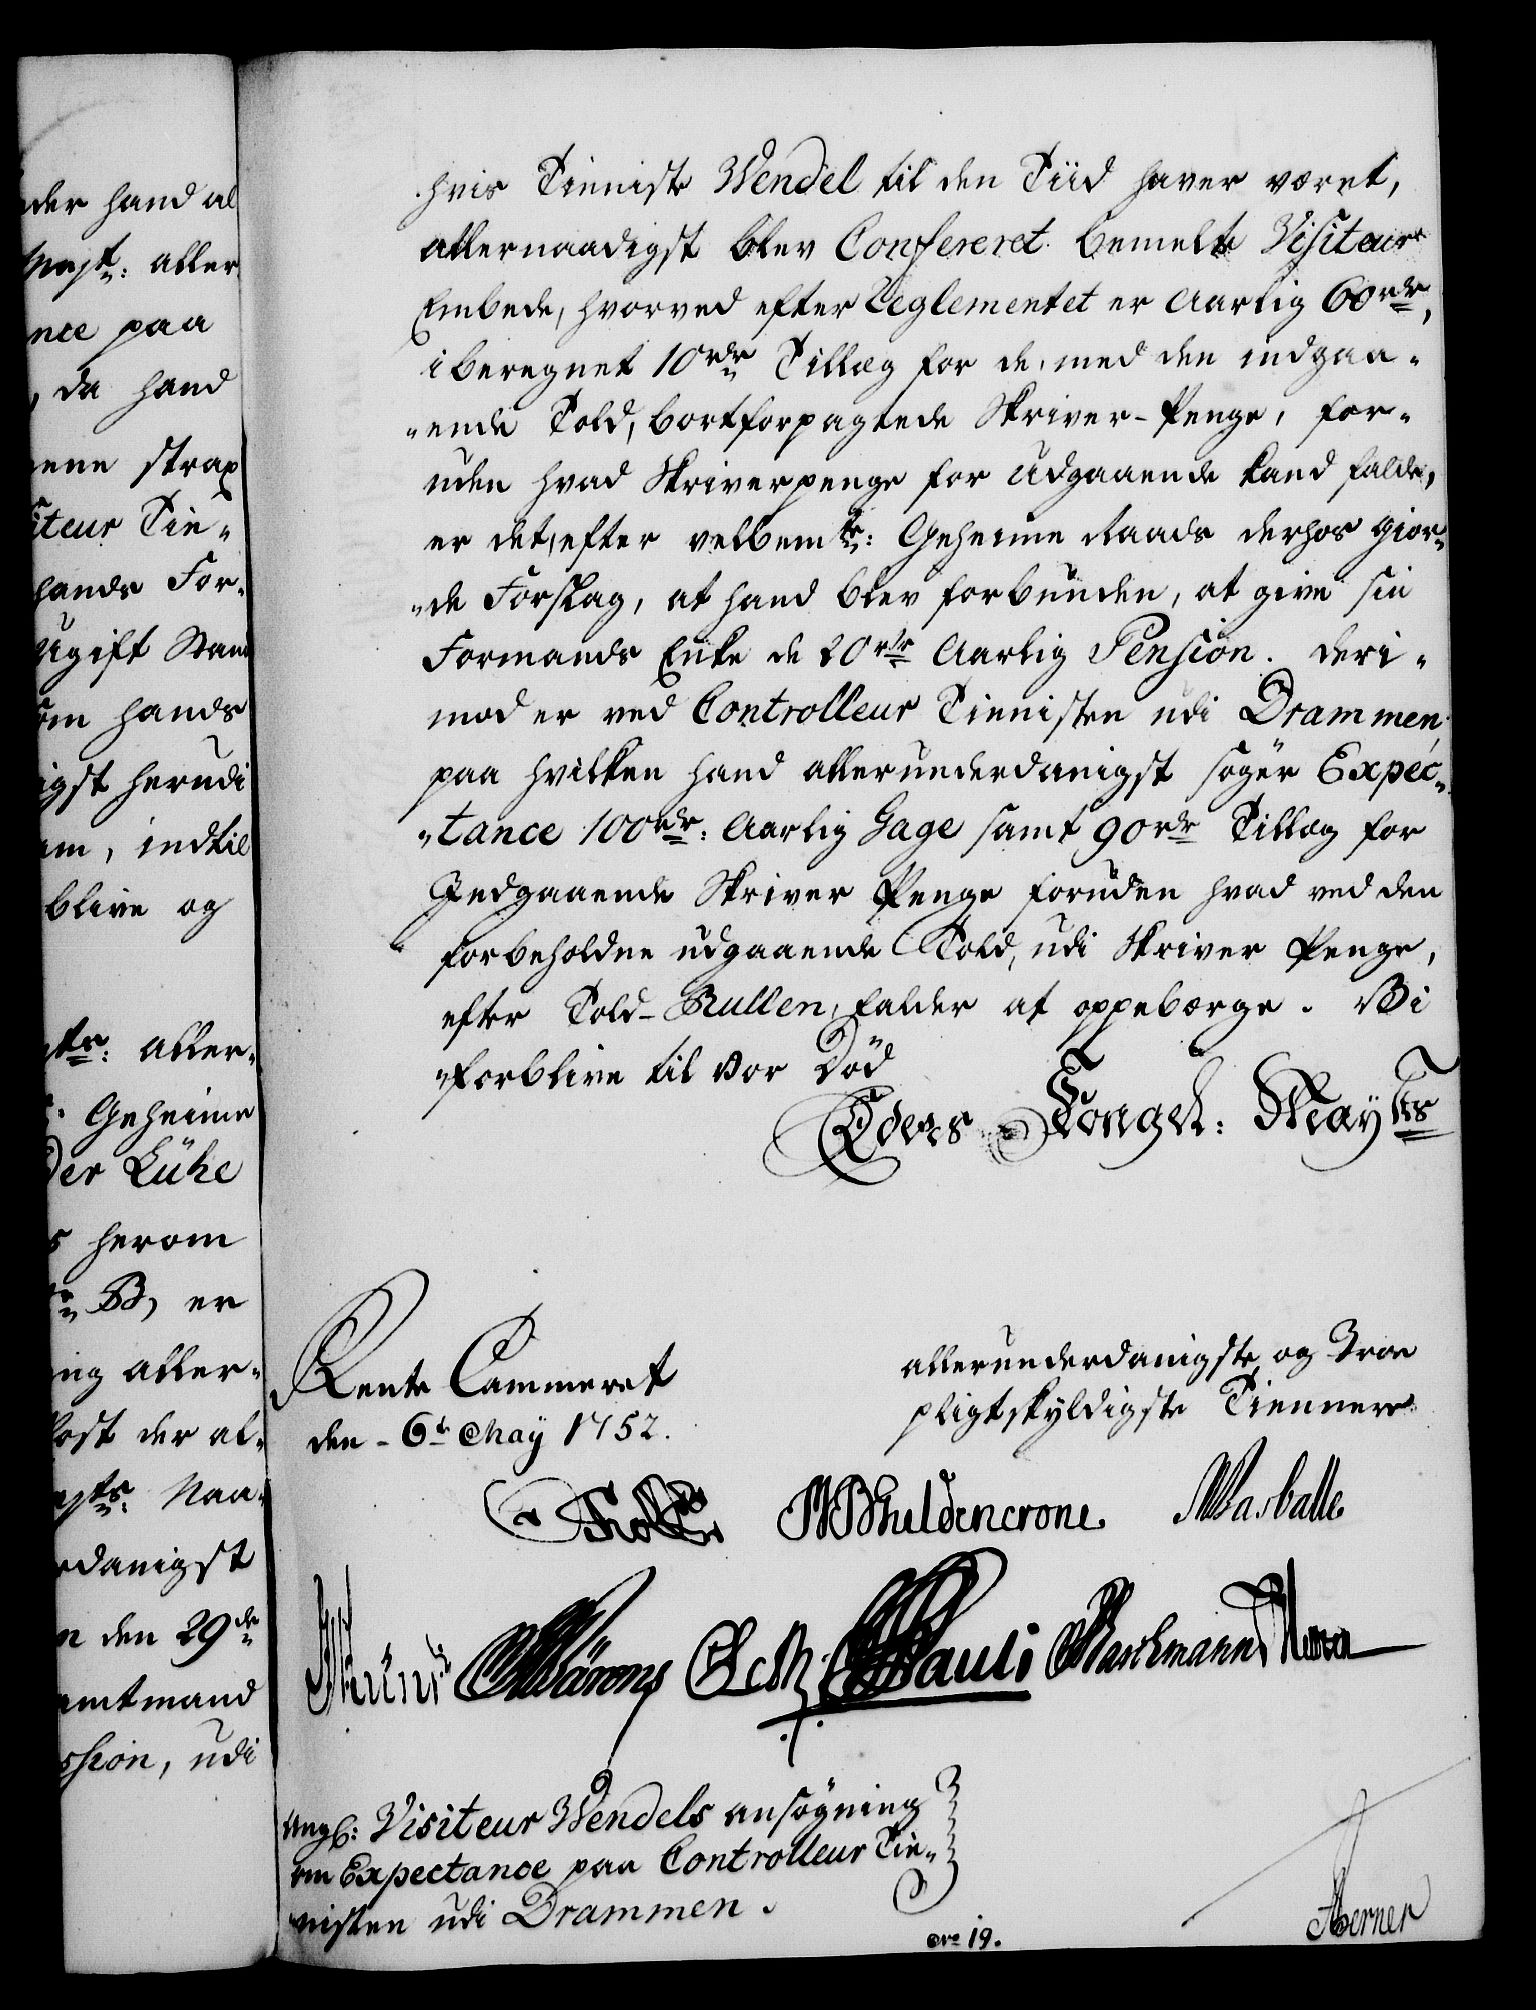 der hand al
Mayt: aller
nce paa
, da hand
ene strax
iteur Tie-
hands For-
ugift Stand
om hands
igst herudi
am, indtil
blive og
ts: aller-
Geheime
Der Lühe
s herom
B, er
ing aller-
Post der al-
yts: Naa-
rdanigst
n den 29de
amtmand
ssion, udi
hvis Tieniste Wendel til den Tiid haver været,
allernaadigst blev Confereret bemelte Visiteur
Embede, hvorved efter Reglementet er Aarlig 60rdr,
iberegnet 10rdr Tillæg for de, med den indgaa-
-ende Told, bortforpagtede Skriver-Penge, for-
uden hvad Skriverpenge for Udgaaende kand falde,
er det, efter velbemte: Geheime Raads derhos gior-
-de Forslag, at hand blev forbunden, at give sin
Formands Enke de 20rdr Aarlig Pension. deri-
mod er ved Controlleur Tienisten udi Drammen,
paa hvilken hand allerunderdanigst søger Expec-
-tance 100rdr: Aarlig Gage samt 90rdr Tillæg for
Indgaaende Skriver Penge foruden hvad ved den
forbeholdne udgaaende Told, udi Skriver Penge,
efter Told-Rullen, falder at oppebærge. Vi
forblive til vor Død
Eders Kongel: Mayts
Rente Cammeret
den 6te May 1752.
allerunderdanigste og Troe
pligtskyldigste Tiennere
Holck Gyldencrone Wasballe
Pauli Raschmann
Angl: Visiteur Wendels ansøgning
om Expectance paa Controlleur Tie-
nisten udi Drammen.
No 19.
Aberner